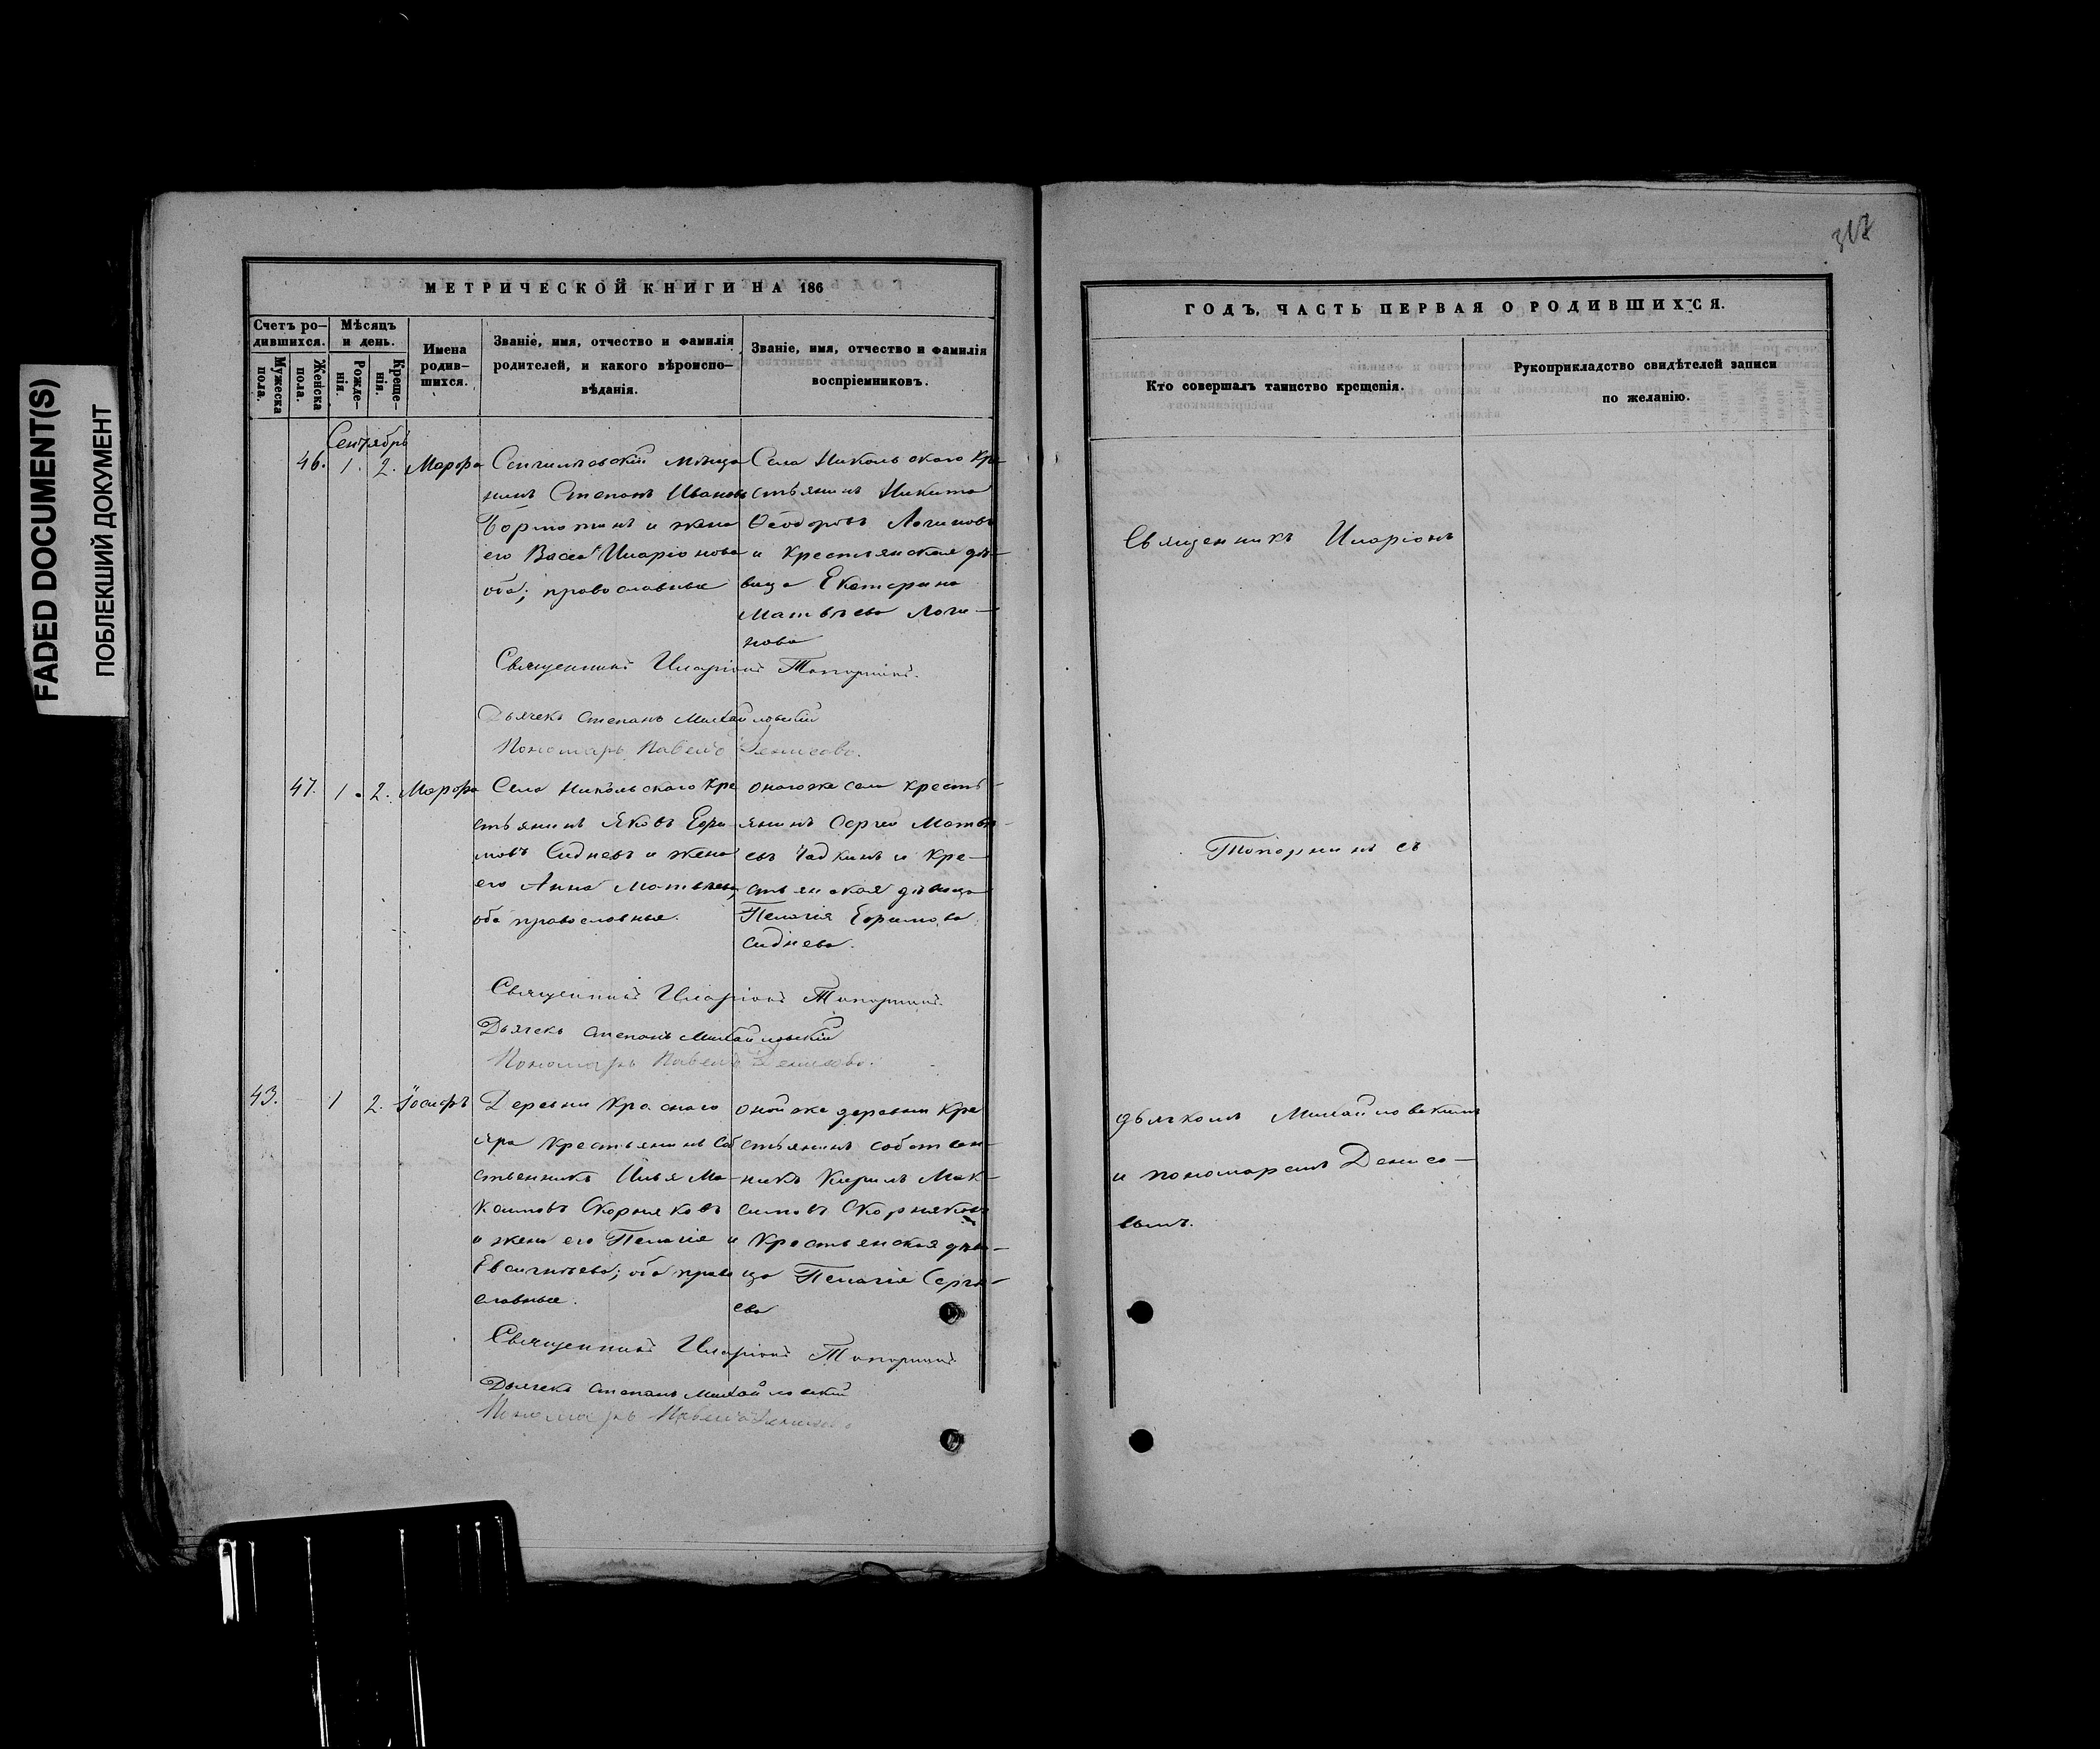 FADED DOCUMENT(S)
ПОБЛЕКШИЙ ДОКУМЕНТ
МЕТРИЧЕСКОЙ КНИГИ НА 186
Счетъ ро-
дившихся.
Мужеска
пола.
Женска
пола.
Мѣсяцъ
и день.
Рожде-
нія.
Креще-
нія.
Имена
родив-
шихся.
Званіе, имя, отчество и фамилія
родителей, и какого вѣроиспо-
вѣданія.
Званіе, имя, отчество и фамилія
воспріемниковъ.
Сентябрь
46. 1. 2. Марфа
Сенгилѣевскій мѣща
нинъ Степанъ Ивановъ
и жена
его Васса Иларіонова
оба; православные
Села Никольскаго Кре
стьянинъ Никита
Ѳеодоровъ Логиновъ
и Крестьянская дѣ-
вица Екатерина
Матвѣева Логи-
нова
Священникъ Иларіонъ Топорнинъ.
Дьячекъ Степанъ Михайловскій
Пономарь Павелъ Денисовъ.
47. 1. 2. Марфа
Села Никольскаго Кре
стьянинъ Яковъ Ефи
мовъ Сидневъ и жена
его Анна Матвѣева,
оба православные.
Онагоже села Кресть-
янинъ Сергей Матвѣ-
евъ Чадкинъ и Кре-
стьянская дѣвица
Пелагія Ефимова
Сиднева.
Священникъ Иларіонъ Топорнинъ.
Дьячекъ Степанъ Михайловскій
Пономарь Павелъ Денисовъ.
43. 1 2. Іосифъ
Деревни Краснаго
яра Крестьянинъ Соб
ственникъ Илья Ма-
ксимовъ Скорняковъ
и жена его Пелагія
Евсигнѣева; оба право
славные.
Оной же деревни Кре
стьянинъ собствен-
никъ Кирилъ Мак-
симовъ Скорняковъ
и Крестьянская дѣви-
ца Пелагія Сергѣ-
ева
Священникъ Иларіонъ Топорнинъ
Дьячекъ Степанъ Михайловскій
Пономарь Павелъ Денисовъ.
ГОДЪ, ЧАСТЬ ПЕРВАЯ О РОДИВШИХСЯ.
Кто совершалъ таинство крещенія.
Рукоприкладство свидѣтелей записи
по желанію.
Священникъ Иларіонъ
Топорнинъ съ
дьячкомъ Михайловскимъ
и пономаремъ Денисо-
вымъ.